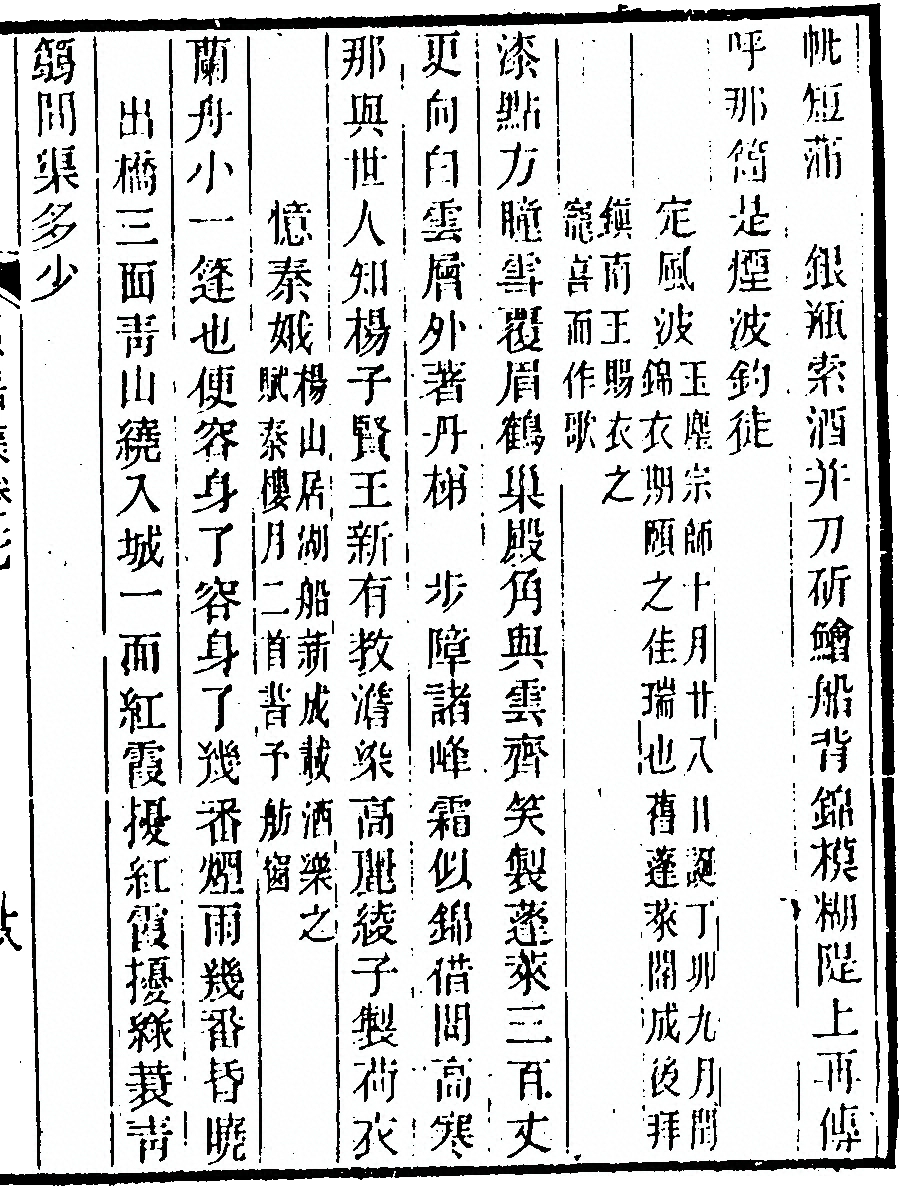 帆短蒲　銀瓶索酒并刀斫鱠船背錦模糊隄上再傳
呼那箇是煙波釣徒
定風波
玉塵宗師十月廿八日誕丁卯九月閏
錦衣期頤之佳瑞也舊蓬萊開成後拜
鎮南王賜衣之
寵喜而作歌
漆點方瞳雪覆眉鶴巢殿角與雲齊笑製蓬萊三百丈
更向白雲層外著丹梯　步障諸峰霜似錦借問高寒
那與世人知楊子賢王新有教濳染高麗綾子製荷衣
憶秦娥
楊山居湖船新成載酒樂之
賦秦樓月二首書予舫窗
蘭舟小一篷也便容身了容身了幾番煙雨幾番昏曉
出橋三面青山繞入城一面紅霞擾紅霞擾綠蓑青
篛問渠多少